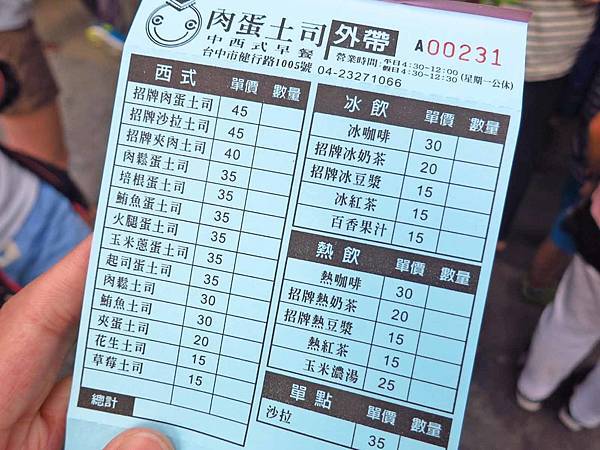 肉蛋土司 外帶 A00231
中西式早餐
台中市健行路1005號
營業時間：平日4:30~12:00
假日4:30~12:30 (星期一公休)
04-23271066
西式 單價 數量
招牌肉蛋土司 45
招牌沙拉土司 45
招牌夾肉土司 40
肉鬆蛋土司 35
培根蛋土司 35
鮪魚蛋土司 35
火腿蛋土司 35
玉米蔥蛋土司 35
起司蛋土司 35
肉鬆土司 30
鮪魚土司 30
夾蛋土司 20
花生土司 15
草莓土司 15
總計
冰飲 單價 數量
冰咖啡 30
招牌冰奶茶 20
招牌冰豆漿 15
冰紅茶 15
百香果汁 15
熱飲 單價 數量
熱咖啡 30
招牌熱奶茶 20
招牌熱豆漿 15
熱紅茶 15
玉米濃湯 25
單點 單價 數量
沙拉 35